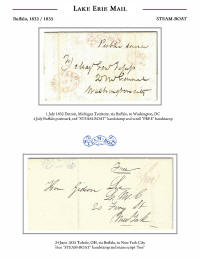 LAKE ERIE MAIL
Buffalo, 1832 / 1835
STEAM-BOAT
Public service
Washington
1 July 1832 Detroit, Michigan Territory, via Buffalo, to Washington, DC
4 July Buffalo postmark, red "STEAM-BOAT" handstamp and scroll "FREE" handstamp
Free
Hon. Gideon Lee
M. C.
20 Ferry St
New York
24 June 1835 Toledo, OH, via Buffalo, to New York City
"STEAM-BOAT" handstamp and manuscript "Free"